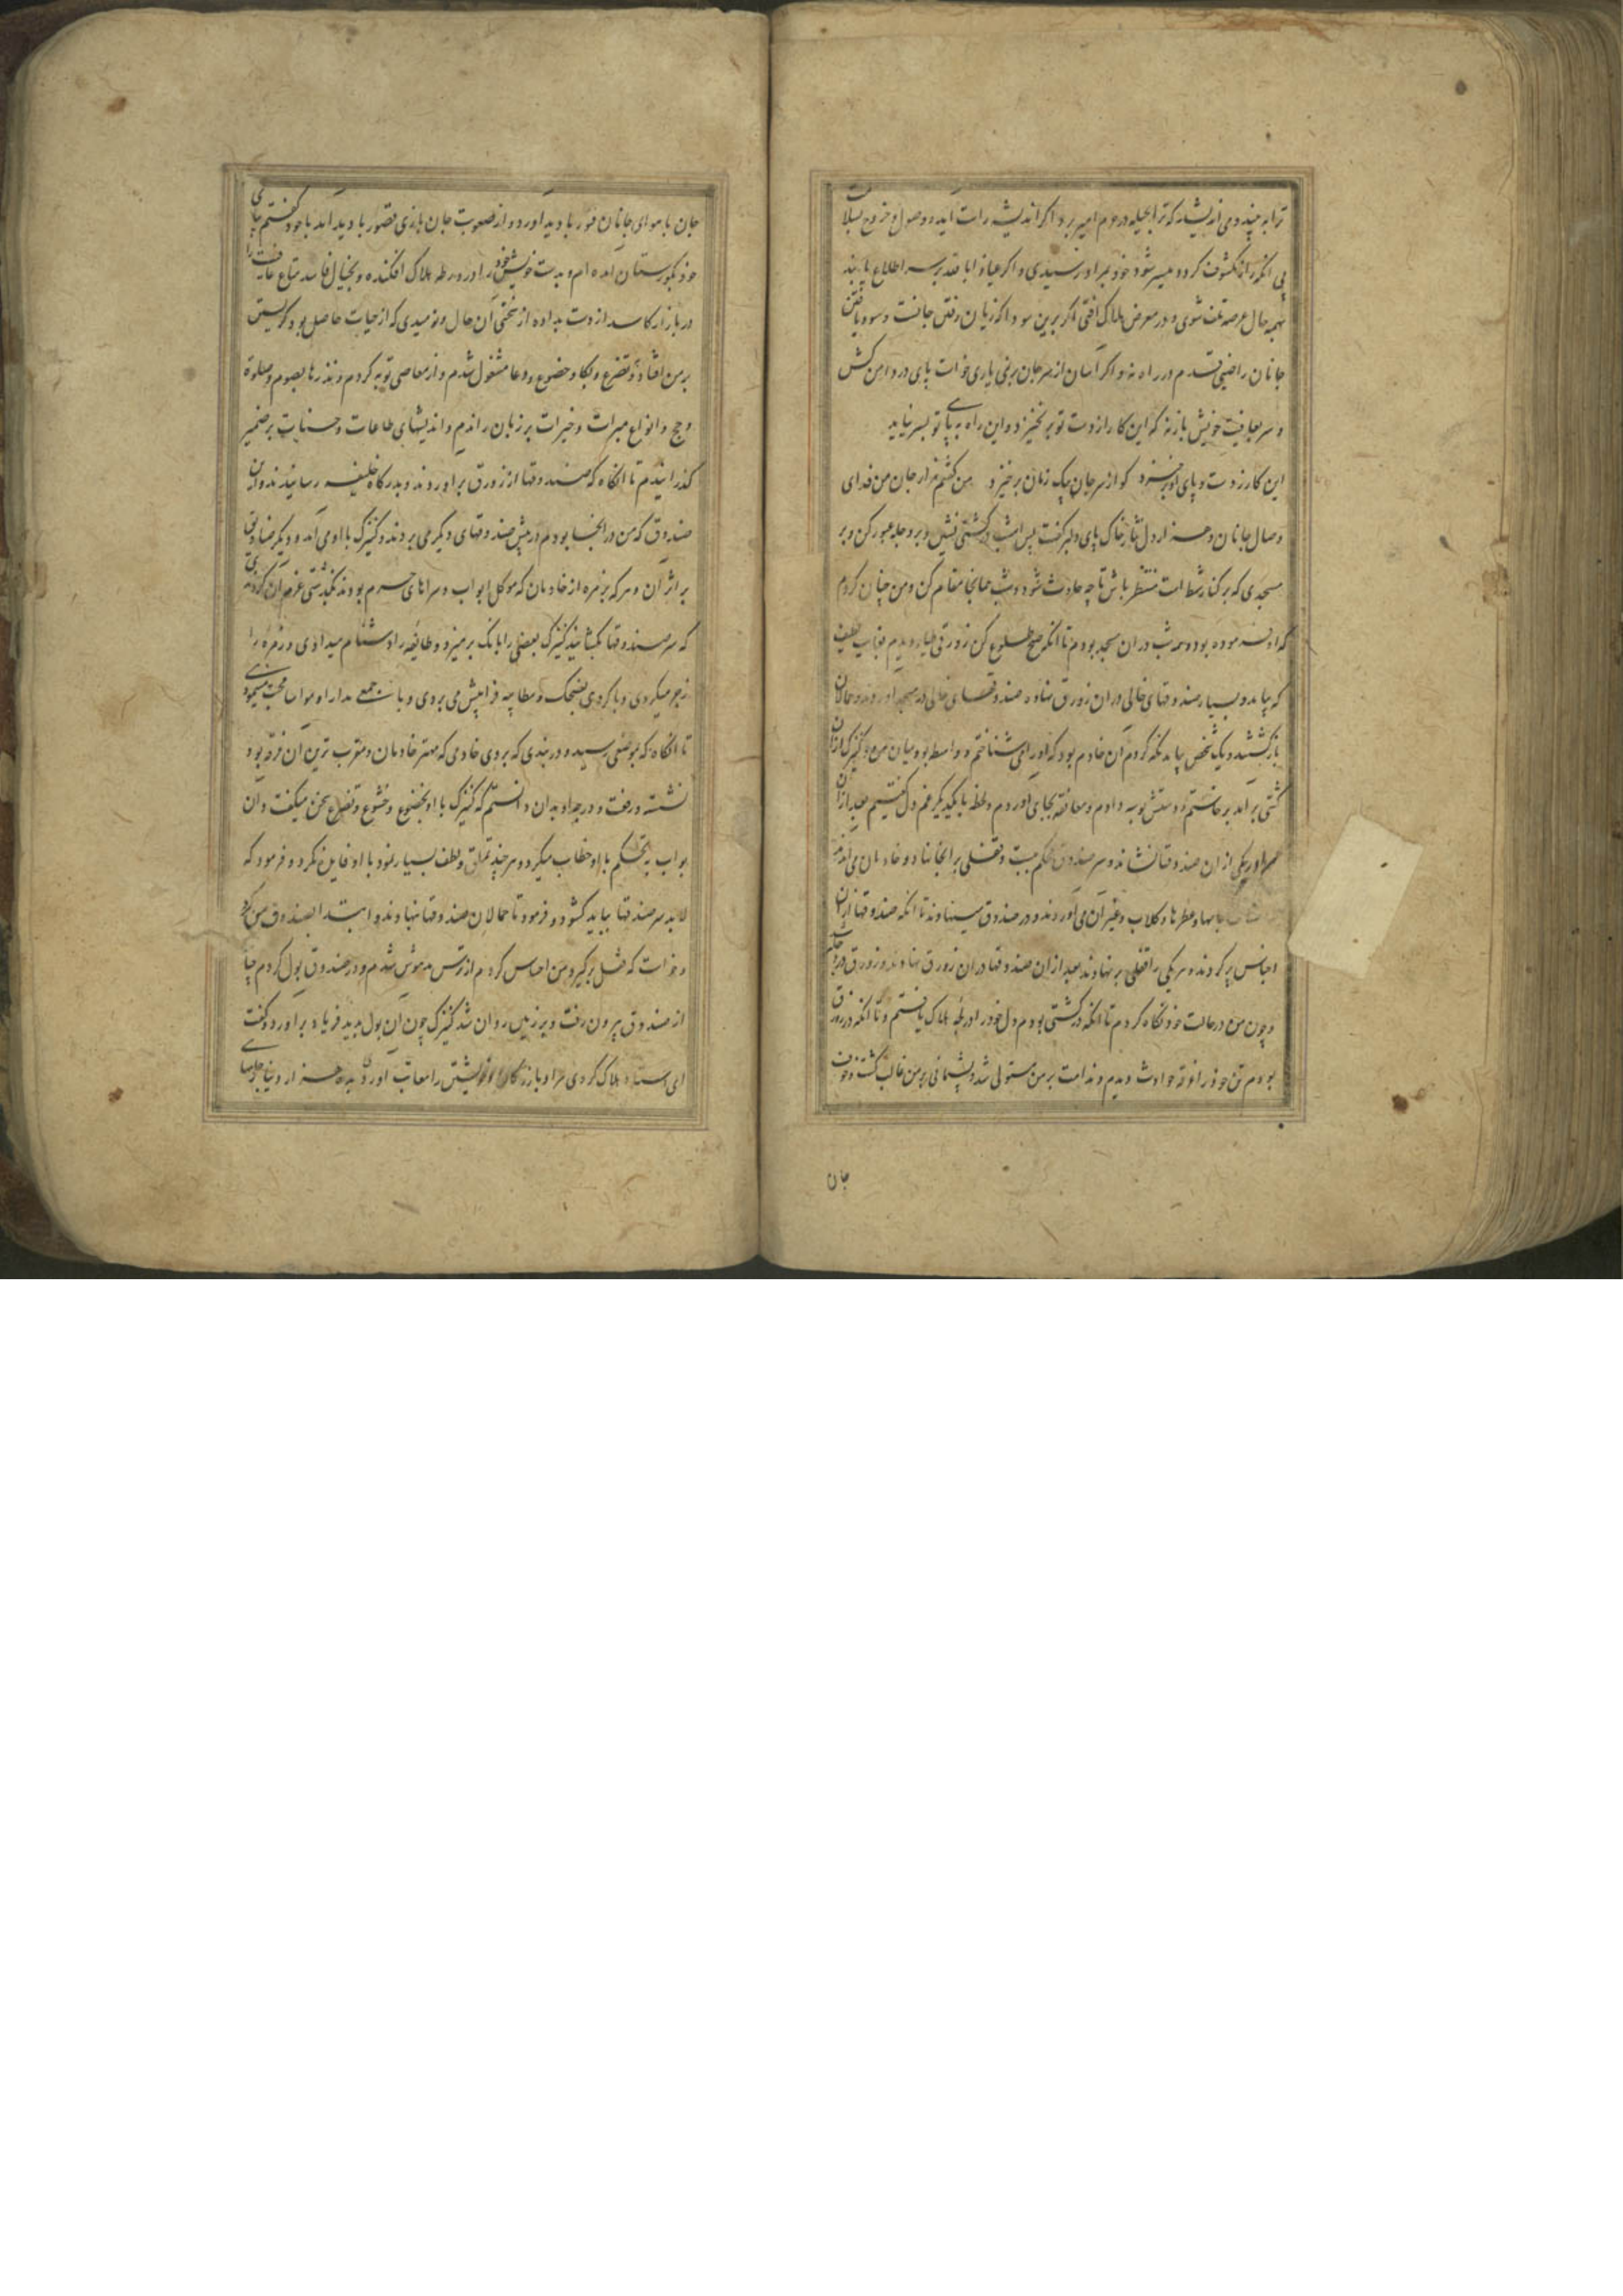 ترا به بیند و می اندیشد که ترا بحیله در حرم امیر برد اگر اندیشه راست آید و وصول و خروج بسلامت
بی آنکه راز مکشوف گردد میسر شود خود بمراد رسیدی و اگر عیاذا بالله بر سر اطلاع یابند
بهمه حال عرضه تلف شوی و در معرض هلاک افتی اگر برین سودا که زیان رفتن جانست و سود یافتن
جانان راضی قدم در راه نه و اگر آسان از سر جان بر نمی یاری خواست پای در دامن کش
و سر بعافیت خویش باز نه که این کار از دست تو بر نخیزد و این راه به پای تو بسر نیاید
این کار ز دست و پای او برخیزد کو از سر جان بیک زمان برخیزد من گفتم هزار جان من فدای
وصال جانان و هزار دل نثار خاک پای دلبر گفت پس امشب در کشتی نشین و بر دجله عبور کن و بر
مسجدی که بر کنار شط است منتظر باش تا چه حادث شود و شب همانجا مقام کن و من چنان کردم
که او فرموده بود و همه شب در آن مسجد بودم تا آنکه صبح طلوع کن زورقی دیدم بغایت لطیف
که بیامد و بسیار صندوقهای خالی در آن زورق نهاده صندوقهای خالی در مسجد آوردند و حمالان
بازگشتند و یک شخص بماند نگه کردم آن خادم بود که او را می شناختم و واسطه بود میان من و کنیزک از آن
کشتی بر آمد برخاستم و دستش بوسه دادم و معانقه بجای آوردم و لحظه با یکدیگر غم دل گفتیم بعد از آن
مرا در یکی از آن صندوقها نشاند و سر صندوق محکم ببست و قفلی بر آنجا نهاد و خادمان می آمدند
جامها و عطرها و گلاب و غیر آن می آوردند و در صندوق مینهادند تا آنکه صندوقها از آن
اجناس پر کردند و هر یکی را قفلی بر نهادند بعد از آن صندوقها در آن زورق نهادند و زورق در دجله
و چون من در حالت خود نگاه کردم تا آنکه در کشتی بودم دل خود را در لجه هلاک یافتم و تا آنکه در زورق
بودم تن خود را غرقه حوادث دیدم و ندامت بر من مستولی شد و پشیمانی بر من غالب گشت و خوف
جان
جان با هوای جانان فتور با دید آورد و از صعوبت جان بازی قصور با دید آمد با خود گفتم بپای
خود بگورستان آمده ام و بدست خویش خود را در ورطه هلاک افکنده و بخیال فاسد متاع عافیت را
در بازار کاسد از دست بداده از سختی آن حال و نومیدی که از حیات حاصل بود گریستن
بر من افتاد و تضرع و بکا و خضوع و دعا مشغول شدم و از معاصی توبه کردم و نذرها بصوم و صلوة
و حج و انواع مبرات و خیرات بر زبان راندم و اندیشهای طاعات و حسنات بر ضمیر
گذرانیدم تا آنگاه که صندوقها از زورق بر آوردند و بدرگاه خلیفه رسانیدند و آن
صندوق که من در آنجا بودم در پیش صندوقهای دیگر می بردند و کنیزک با او می آمد و دیگر صنادیق
بر اثر آن و هر که بزمره از خادمان که موکل ابواب و سراهای حرم بودند بگذشتی عزم آن کردندی
که سر صندوقها بگشایند کنیزک بعضی را بانک بر میزد و طائفه را دشنام میدادی و زمره را
زجر میکردی و با گروهی بضحک و مطایبه فرا پیش می بردی و با جمعی مدارا و مواسا محبت مینمود
تا آنگاه که بموضعی رسید و در بندی که بر وی خادمی که مهتر خادمان و مقرب ترین آن فرقه بود
نشسته و رفعت و درجه او بدان دانستم که کنیزک با او بخضوع و خشوع و تضرع سخن میگفت و آن
بواب بتحکم با او خطاب میکرد و هر چند تملق و لطف بسیار نمود با او فایده نکرد و فرمود که
لابد سر صندوقها بباید گشود و فرمود تا حمالان صندوقها بنهادند و ابتدا بصندوق من کرد
و خواست که قفل بر گیرد من احساس کردم از ترس مدهوش شدم و در صندوق بول کردم چنانکه
از صندوق بیرون رفت و بر زمین روان شد کنیزک چون آن بول بدید فریاد بر آورد و گفت
ای استاد هلاک کردی مرا و بازرگان را و خویشتن را معاتب آوردی بده هزار دینار جامهای